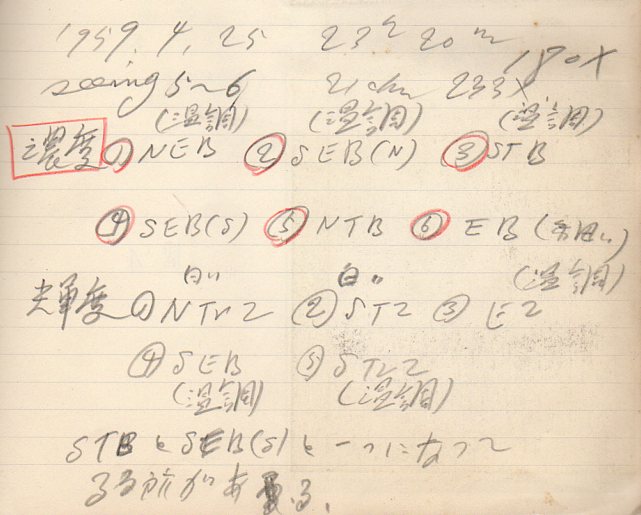 1959. 4. 25 23h 20m 180X
seeing 5~6 21cm 233X
(温調) (温調) (温調)
濃度 ① NEB ② SEB(N) ③ STB
④ SEB(S) ⑤ NTB ⑥ EB
白い 白い (温調)
光輝度 ① NTrZ ② STZ ③ EZ
④ SEB ⑤ STrZ
(温調) (温調)
STBとSEB(S)と一つになって
る所がある.